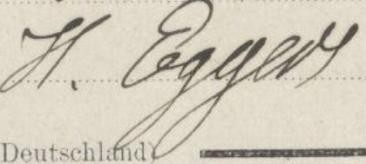 H. Eggers
Deutschland)